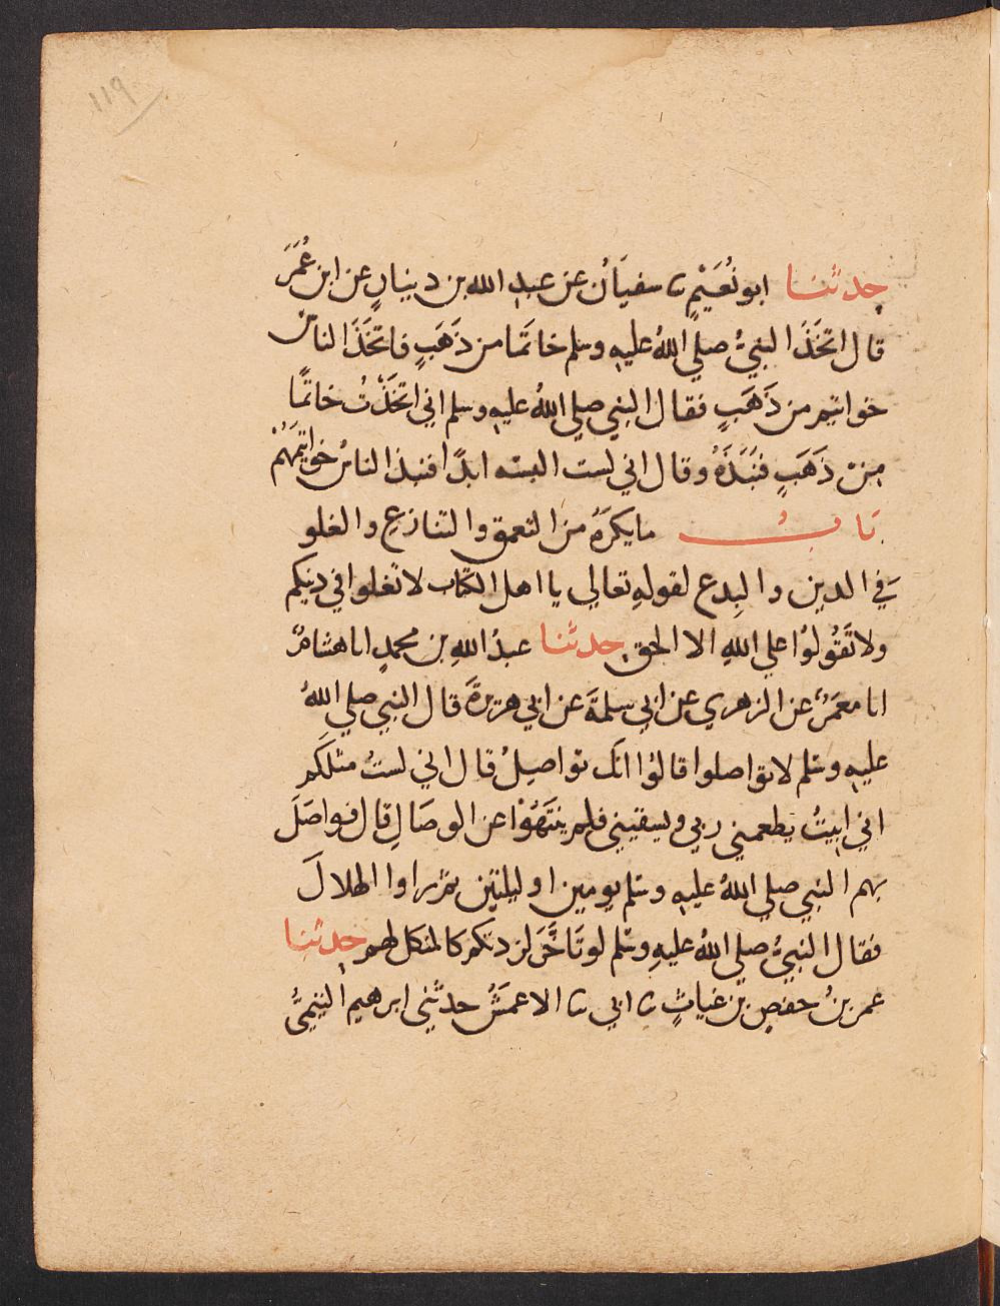 ١١٩
حدثنا ابو نُعَيْمٍ ثنا سفيَانُ عن عبدِ الله بن دينارٍ عن ابن عُمَرَ
قال اتخَذَ النبيُّ صلي اللهُ عليهِ وسلم خاتَمًا من ذَهَبٍ فاتخَذَ الناسُ
خواتيم من ذَهَبٍ فقال النبي صلي اللهُ عليهِ وسلم اني اتخَذْتُ خاتمًا
مِنْ ذَهَبٍ فنَبَذَهُ وقال اني لست البسه ابدًا فنبذ الناسُ خواتيمَهُمْ
بَابُ ما يكرَهُ من التعمق والتنازعِ والغلو
في الدين والبِدع لقولهِ تعالي يا اهل الكتاب لا تغلوا في دينكم
ولا تَقُولُوا علي اللهِ الا الحق حدثنا عبدُ اللهِ بن محمدٍ انا هشامٌ
انا معمَرٌ عن الزهري عن ابي سلمَةَ عن ابي هريرةَ قال النبي صلي اللهُ
عليهِ وسلم لا تواصلوا قالُوا انك تواصِلُ قال اني لستُ مثلكم
اني ابيتُ يطعمني ربي ويسقيني فلم ينتَهُوْا عن الوصَالِ قال فواصَلَ
بهم النبي صلي اللهُ عليهِ وسلم يومين او ليلتين ثم راوا الهلالَ
فقال النبيُّ صلي اللهُ عليهِ وسلم لو تَاخَّرَ لزدتكم كالمنكل لهم حدثنا
عمر بنُ حفص بن غياثٍ ثنا ابي ثنا الاعمَشُ حدثني ابرهيم التيميُّ